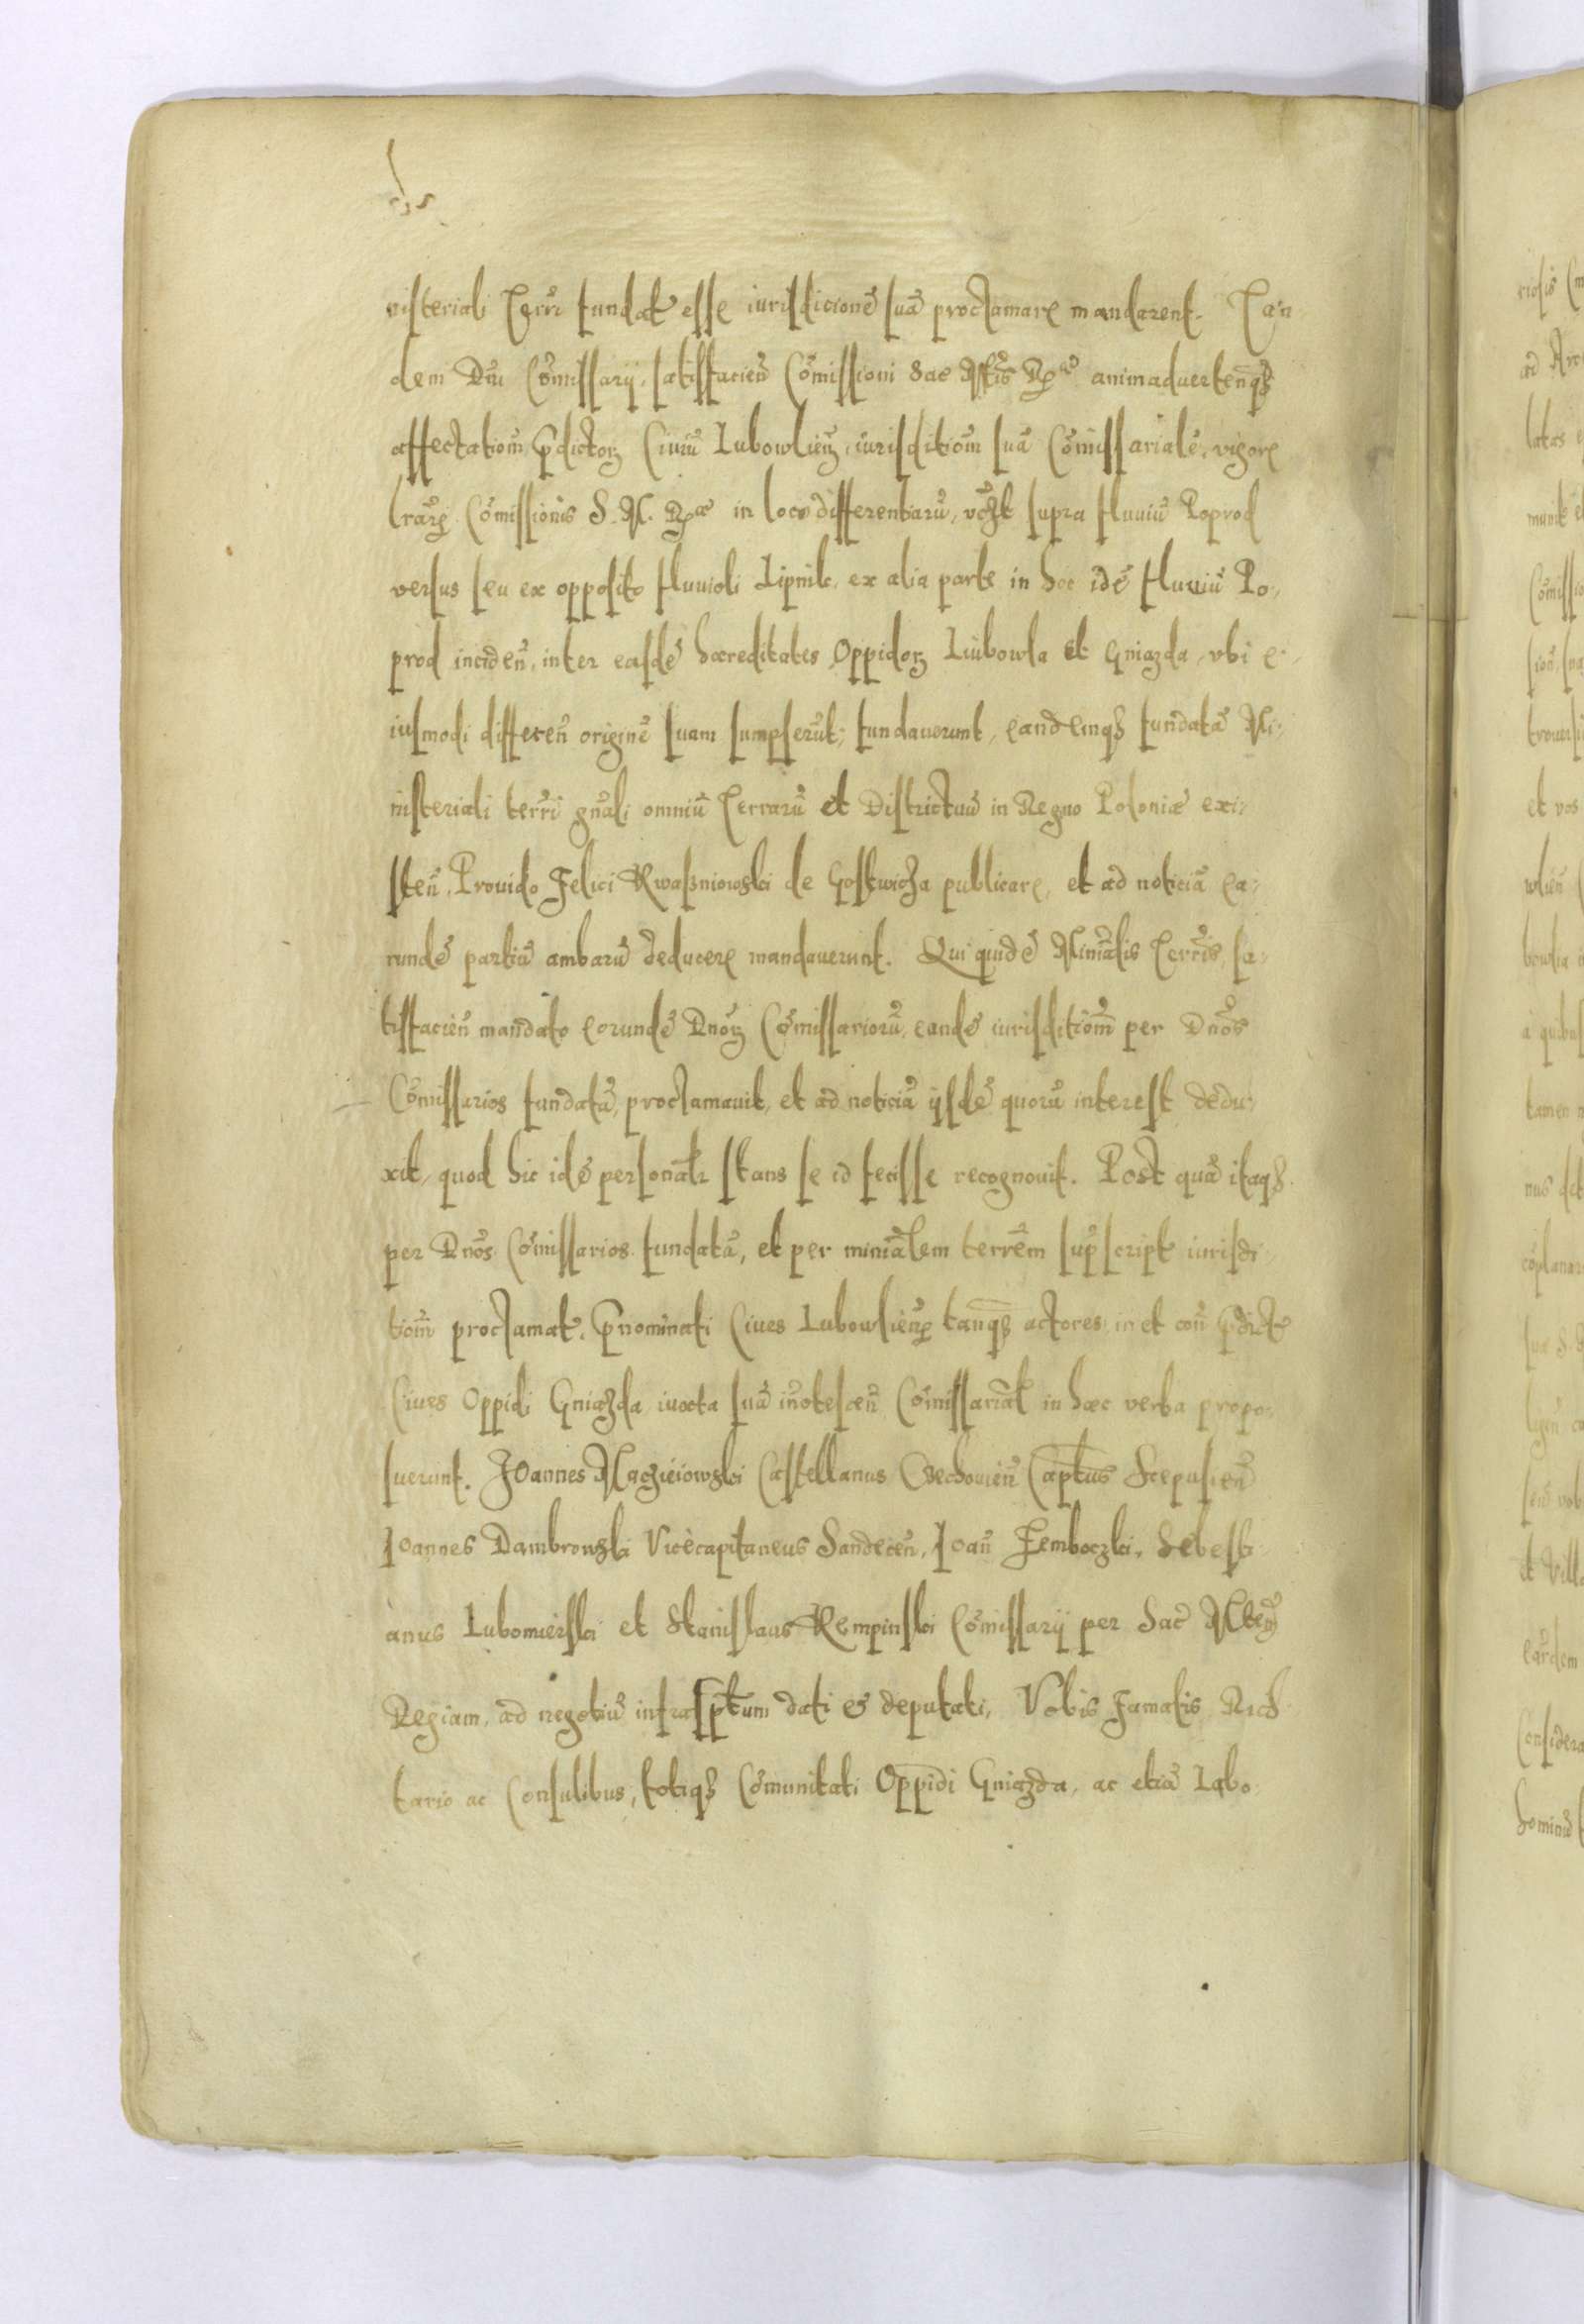 nisteriali Terrī fundat esse iurisdicionē suā proclamare mandarent. Tan-
dem Dni Cōmissarij, satisfacien̄ Cōmissioni Sac Mtis Rꝫ animadvertenq̄ꝫ
affectationē p̄dictoꝝ Ciuiū Lubowlien̄, iurisditionē suā Cōmissarialē, vigore
Lrarū Cōmissionis S. M. Rꝫ in loco differentiarū, vꝫlt supra fluuiū Poprod
versus seu ex opposito fluuioli Lipnik, ex alia parte in hoc idē fluuiū Po-
prod inciden̄, inter easdē hæreditates Oppidoꝝ Liubowla et Gniazda, vbi e-
iusmodi differen̄ originē suam sumpserūt, fundauerunt, eandemqꝫ fundatā Mi-
nisteriali terrī gn̄ali omniū Terrarū et Districtuū in Regno Poloniæ exi-
sten̄, Prouido Felici Kwasniowski de Gostwicza publicare, et ad noticiā ea-
rundē partiū ambarū deducere mandauerunt. Qui quidē Ministrialis Terrīs, sa-
tisfacien̄ mandato eorundē Dnoꝝ Cōmissariorū, eandē iurisditionē per Dnōs
Cōmissarios fundatā, proclamauit, et ad noticiā ijsdē quorū interest dedu-
xit, quod hic idē personalr stans se id fecisse recognouit. Post quā itaqꝫ
per Dnōs Cōmissarios fundatā, et per miniālem terrēm sup̄script iurisdi-
tionē proclamat, p̄nominati Ciues Lubowlien̄ tanqꝫ actores in et con̄ p̄dictos
Ciues Oppidi Gniazda iuxta suā inotescen̄ Cōmissarial in hæc verba propo-
suerunt. Joannes Maczieiowski Castellanus Czechouien̄ Captūs Scepusien̄
Joannes Dambrowski Vicecapitaneus Sandecen̄, Joan̄ Temboczki, Sebesti-
anus Lubomierski et Stanislaus Rempinski Cōmissarij per Sac Mtem
Regiam, ad negotiū infrasptum dati & deputati, Vobis Famatis Aduo-
tario ac Consulibus, totiqꝫ Cōmunitati Oppidi Gniazda, ac etiā Labo-